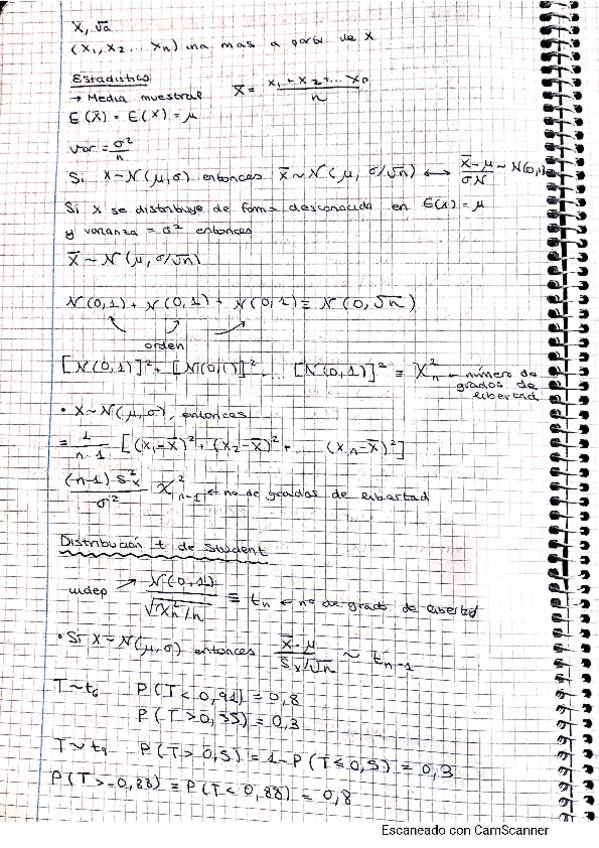 X, va
(X₁, X₂ ... Xn) ma mas a partir de X
Estadístico
→ Media muestral X̄ = X₁ + X₂ + ... Xn / n
E(X̄) = E(X) = μ
Var = σ²/n
Si X ~ N(μ, σ) entonces X̄ ~ N(μ, σ/√n) ↔ X̄ - μ / σ√ ~ N(0,1)
Si X se distribuye de forma desconocida en E(X) = μ
y varianza = σ² entonces
X̄ ~ N(μ, σ/√n)
N(0,1) + N(0,1) + N(0,1) ≡ N(0, √n)
orden
[N(0,1)]² + [N(0,1)]² ... [N(0,1)]² ≡ X²n ← número de
grados de
libertad
• X ~ N(μ, σ), entonces
= 1/n-1 [(X₁-X̄)² + (X₂-X̄)² + ... (Xn-X̄)²]
(n-1) S²x / σ² X²n-1 ← no de grados de libertad
Distribución t de Student
indep → N(0,1) / √X²n/n ≡ tn ← no de grado de libertad
• Si X ~ N(μ, σ) entonces X̄ - μ / Sx/√n ~ tn-1
T ~ t6 P(T < 0,91) = 0,8
P(T > 0,55) = 0,3
T ~ t9 P(T > 0,5) = 1 - P(T ≤ 0,5) = 0,3
P(T > -0,88) = P(T < 0,88) = 0,8
Escaneado con CamScanner